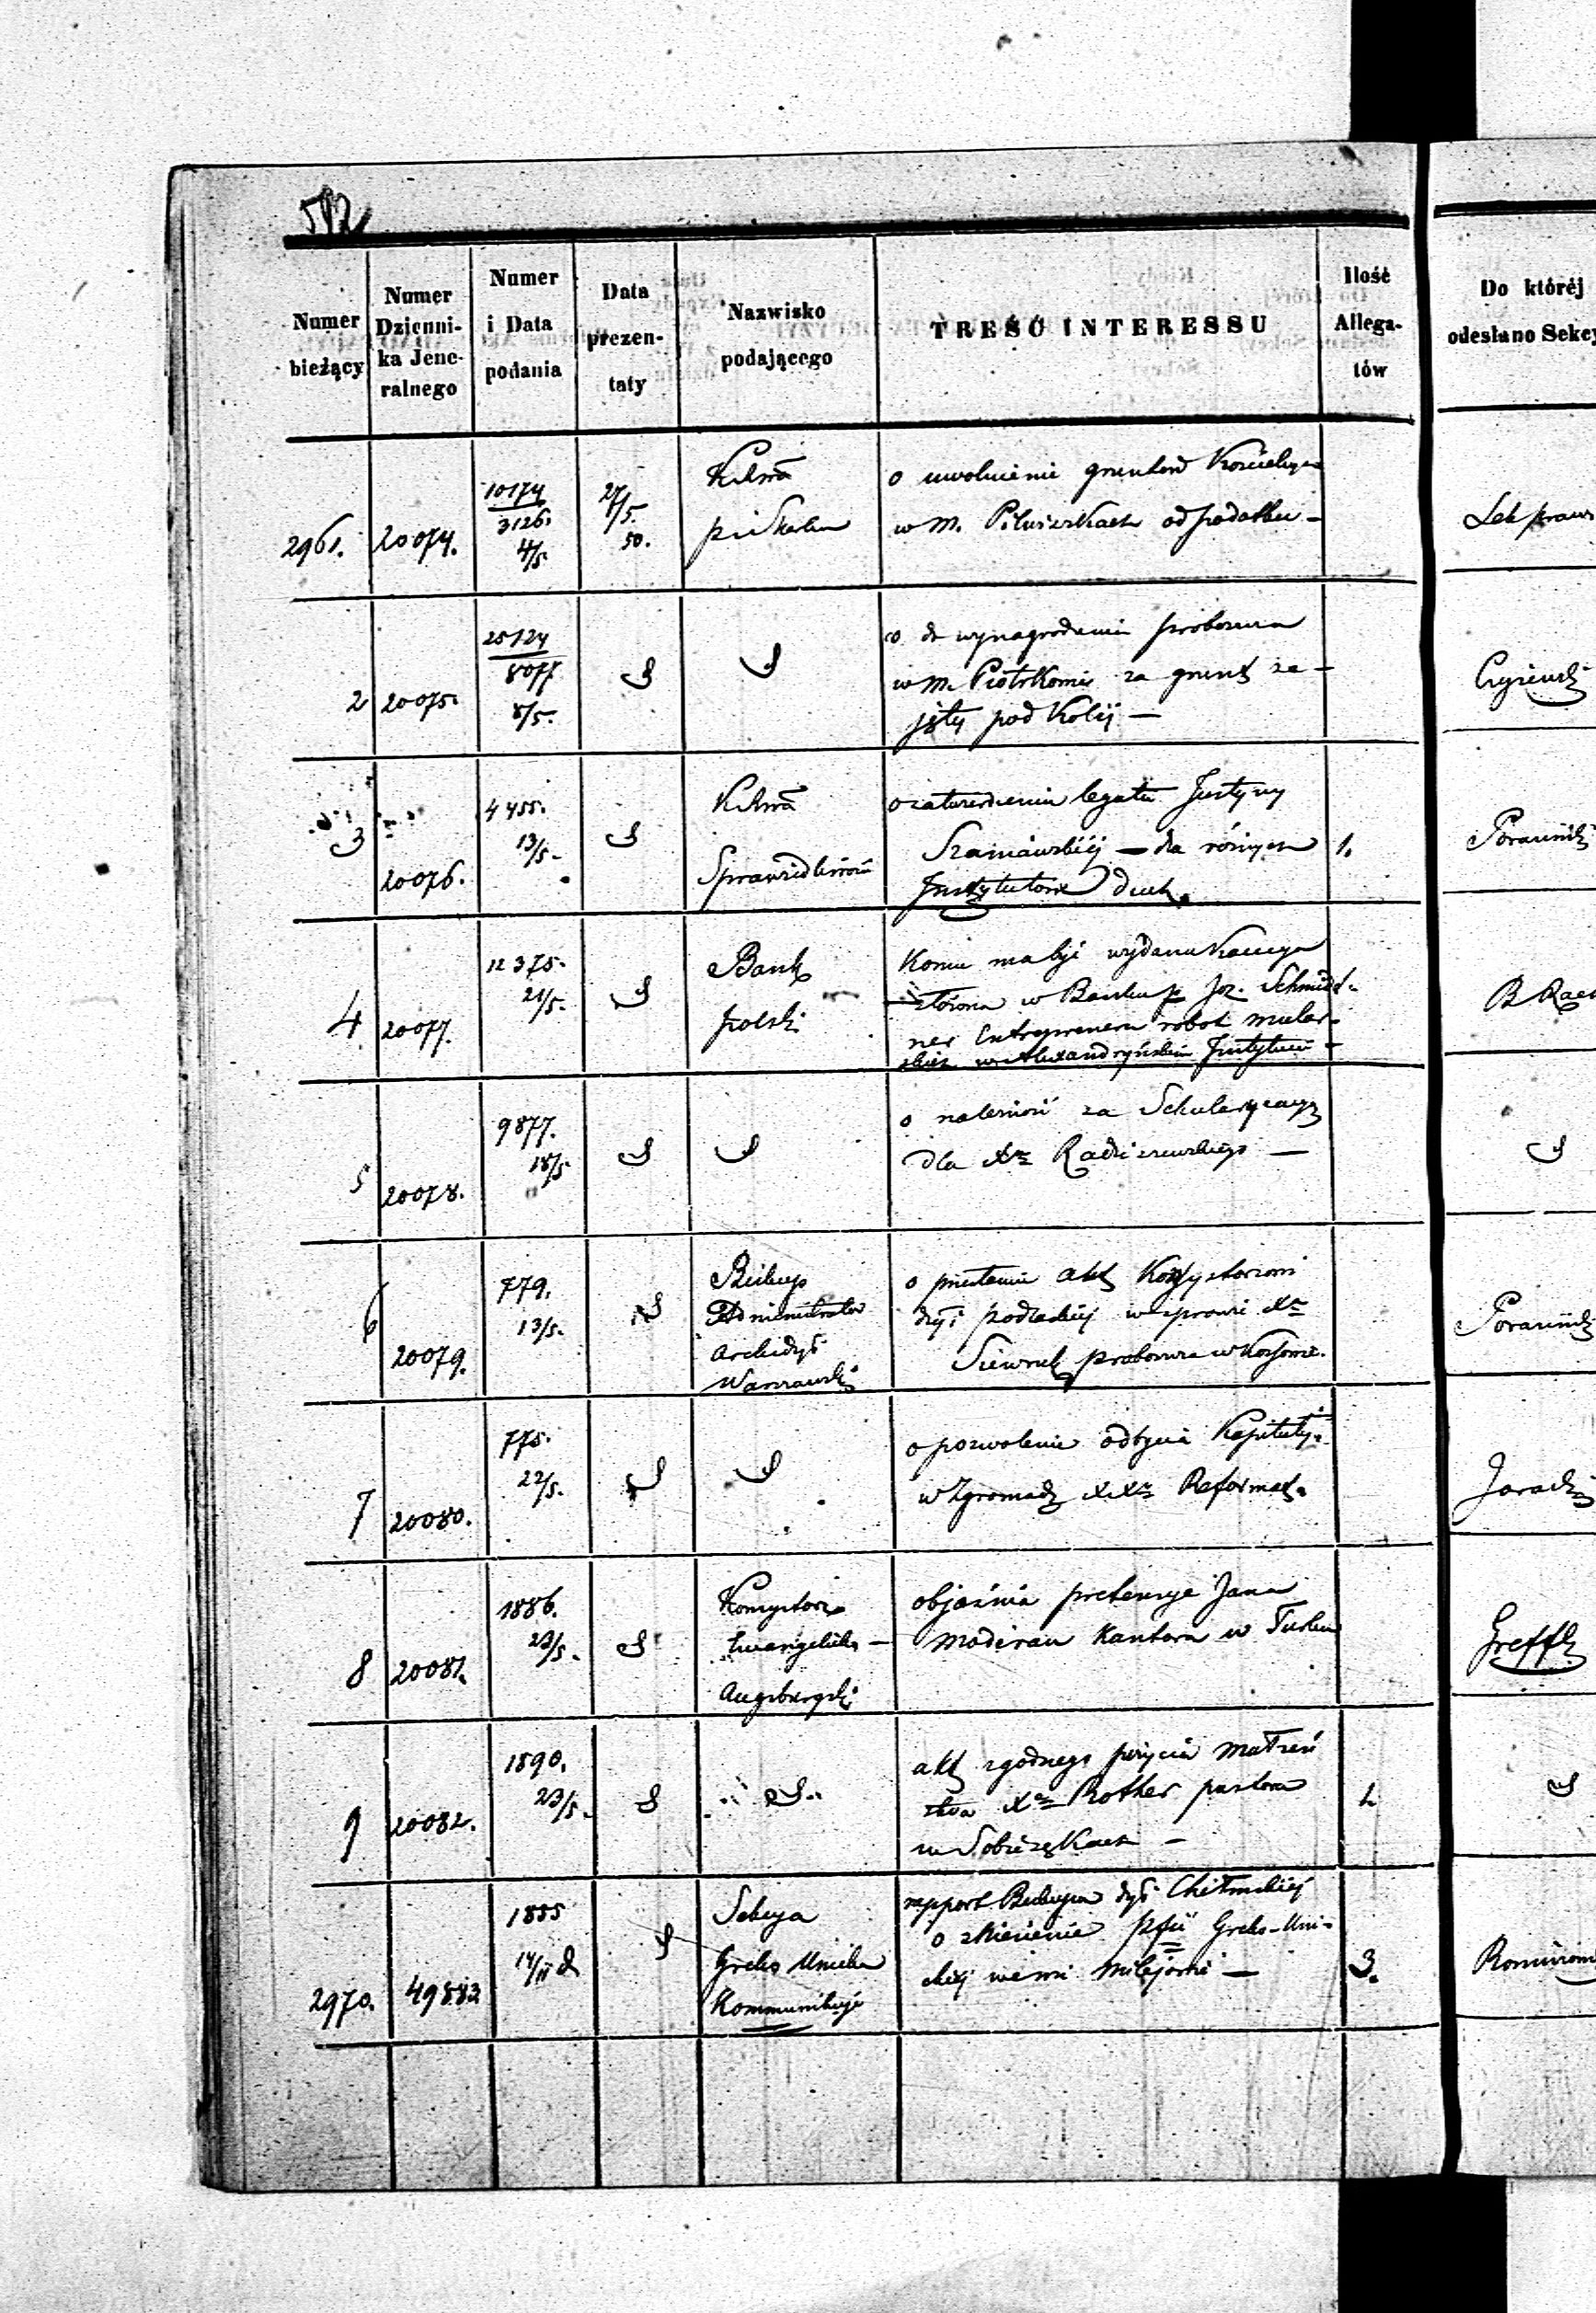 512
Numer
bieżący
Numer
Dzienni-
ka Jene-
ralnego
Numer
i Data
podania
Data
prezen-
taty
Nazwisko
podającego
TREŚĆ INTERESSU
Ilość
Allega-
tów
Do któréj
odesłano Sekcy
2961.
20074.
10174
3126.
4/5.
27/5.
50.
o uwolnienie gruntów Kościelnych
w M. Pilwiszkach od podatku –
2
20075.
25124
8077
8/5.
co do wynagrodzenia proboszcza
w M. Piotrkowie za grunt za –
jęty pod Koléj —
3
20076.
4455.
13/5.
Sprawiedliwości
o zatwierdzeniu legatu Justyny
Szaniawskiéj — dla różnych
Instytutów Duch.
1.
4
20077.
12375.
21/5.
Bank
polski
Komu ma być wydana Kaucya
złożona w Banku p Joz. Schmidt-
ner Entreprenera robot mular-
skich w Alexandryńskim Instytucie –
5
20078.
9877.
18/5.
o należność za
dla Xa Radziszewskiego —
6
20079.
779.
13/5.
Biskup
Administrator
Archidyi
Warszawski
o przesłanie akt Konsystorzowi
dyi podlaskiéj w sprawie Xa
proboszcza w
Poraziński
7
20080.
775.
22/5.
o pozwolenie odbycia Kapituły
w Zgromadz XXów Reformat.
8
20081.
1886.
23/5.
Konsystorz
Ewangelicko —
Augsburgski
objaśnia pretensye Jana
Kantora w
9
20082.
1890.
23/5.
akt zgodnego pożycia małżeń
stwa Xa Rother pastora
w Sobieszkach –
2970.
49883
1855
14/11
Sekcya
Greko Unicka
Kommunikuje
rapport Biskupa dyi Chełmskiéj
o zniesienie pfii Greko-Uni-
ckiéj we wsi Milejowie —
3.